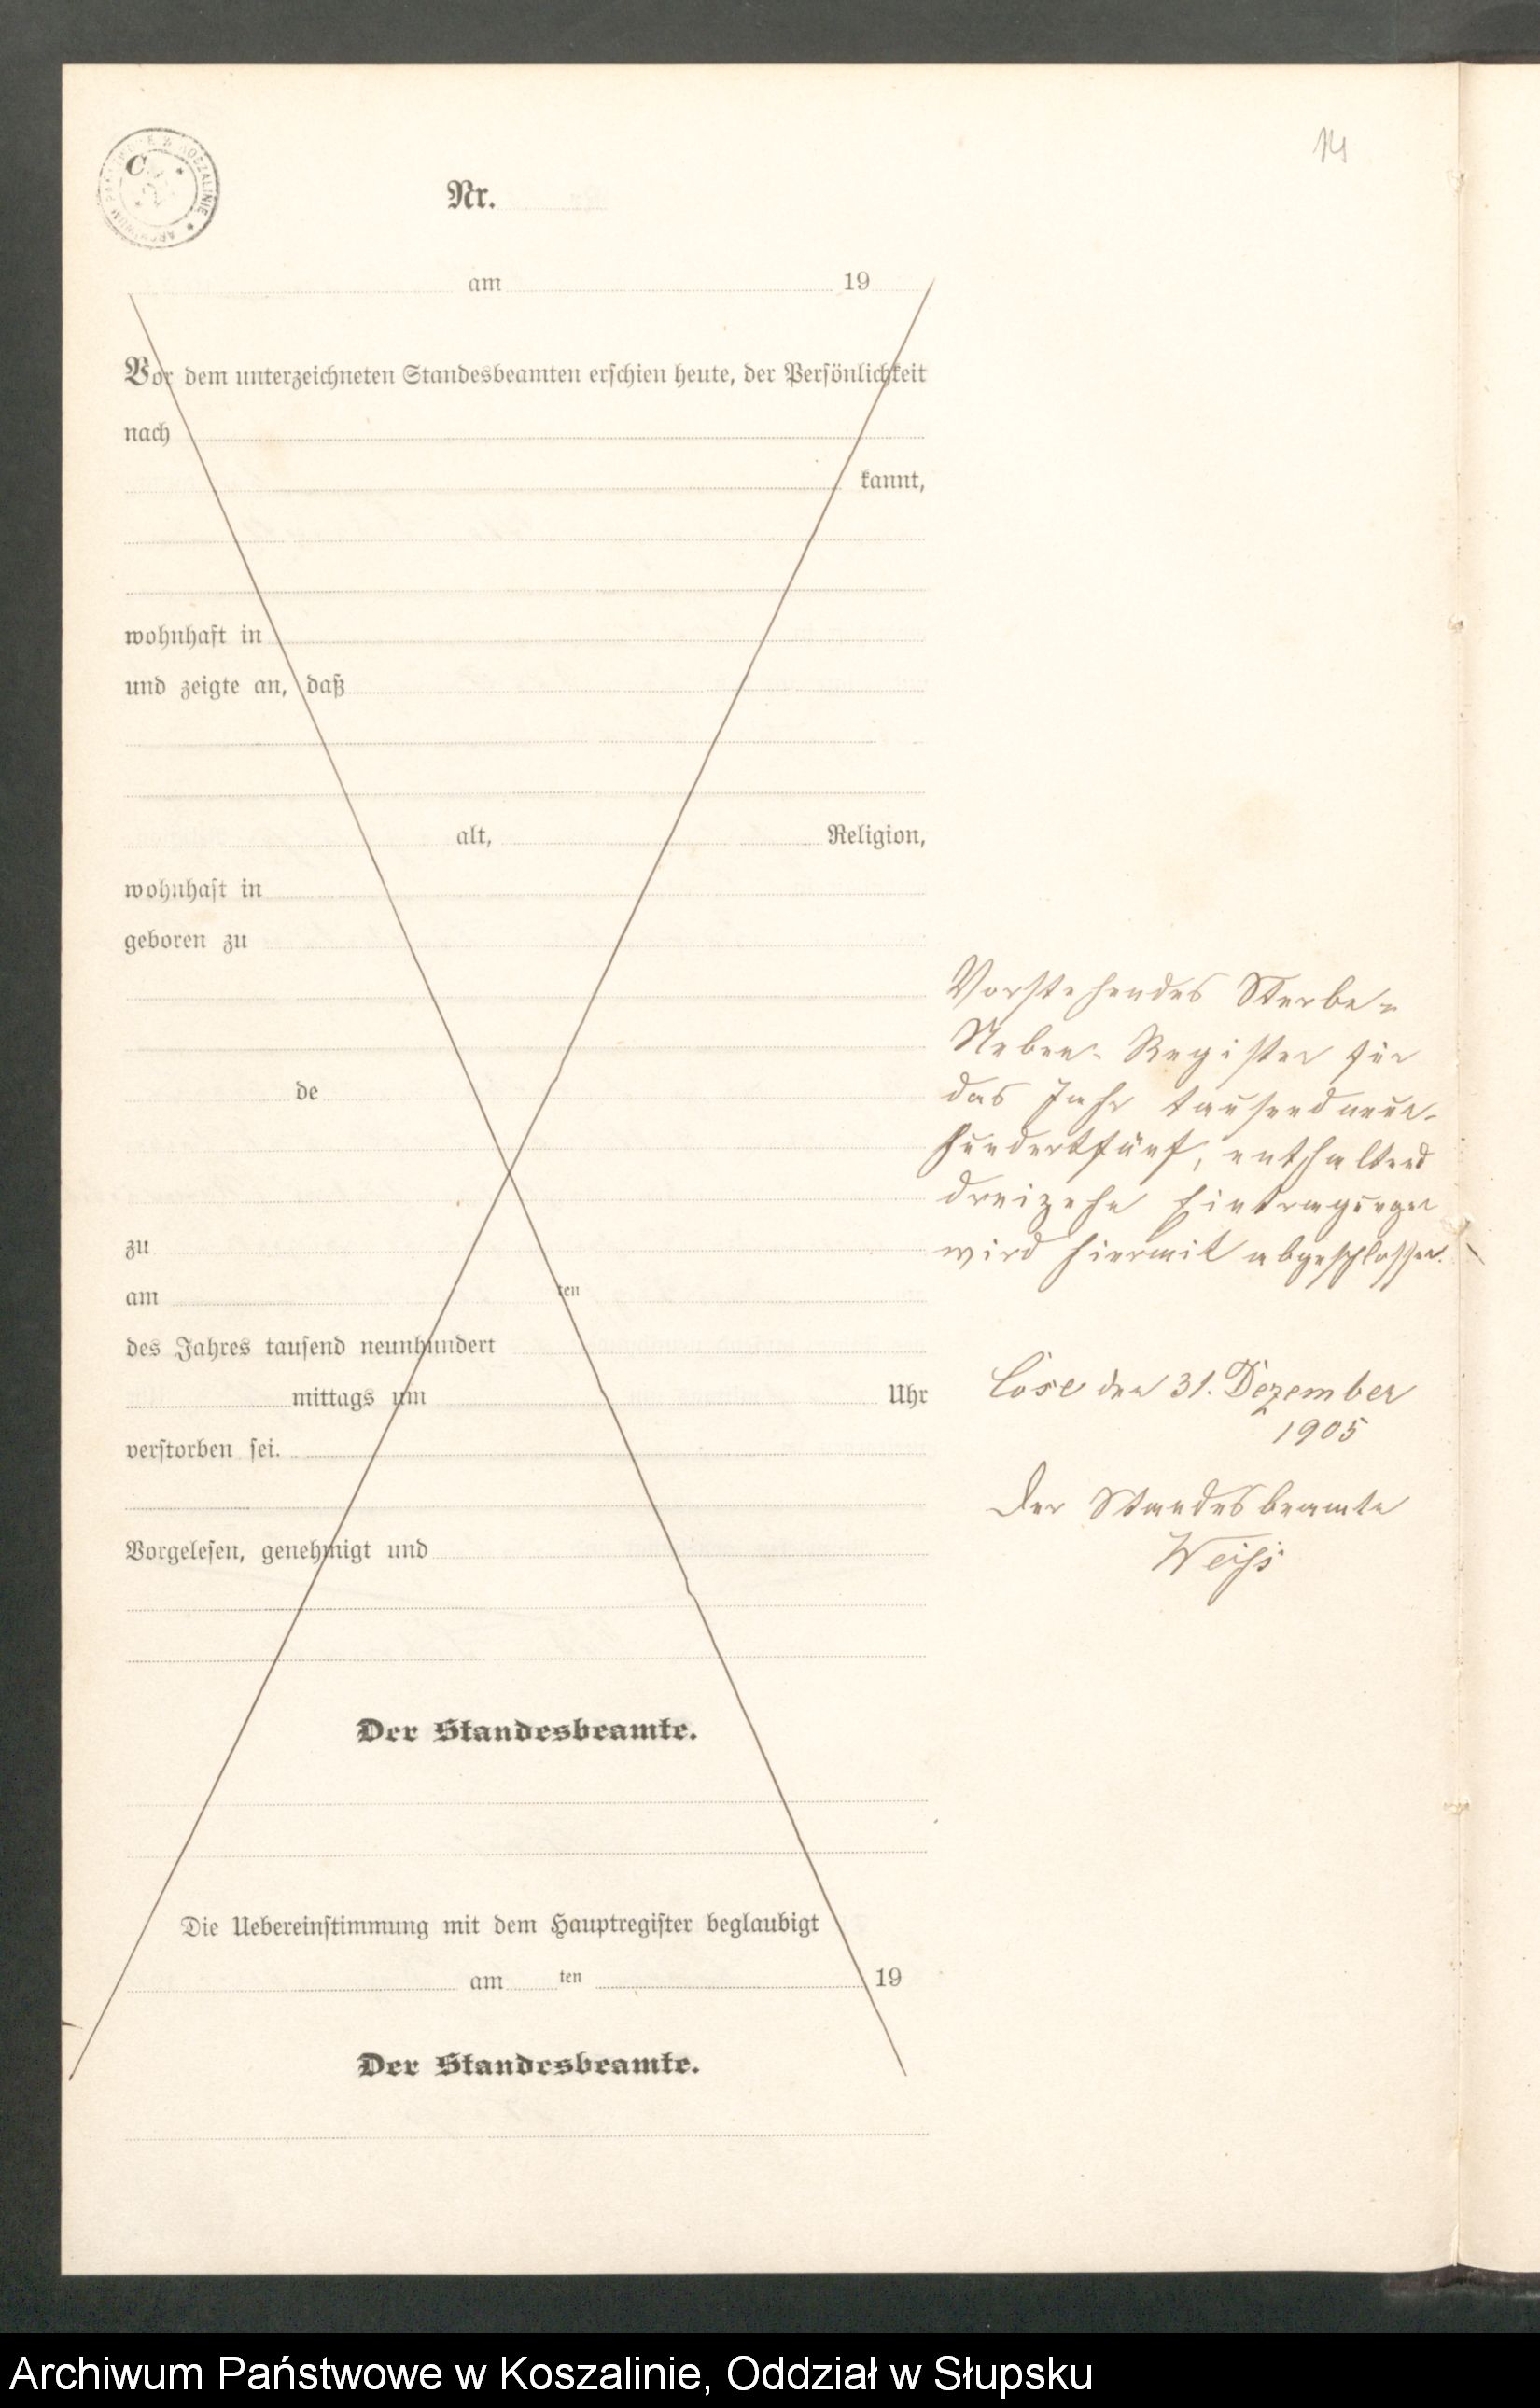 14
Nr.
am 19
Vor dem unterzeichneten Standesbeamten erschien heute, der Persönlichkeit
nach
kannt,
wohnhaft in
und zeigte an, daß
alt, Religion,
wohnhaft in
geboren zu
de
zu
am ten
des Jahres tausend neunhundert
mittags um Uhr
verstorben sei.
Vorgelesen, genehmigt und
Der Standesbeamte.
Die Uebereinstimmung mit dem Hauptregister beglaubigt
am ten 19
Der Standesbeamte.
Vorstehendes Sterbe-
Neben-Register für
das Jahr tausendneun-
hundertfünf, enthaltend
dreizehn Eintragungen
wird hiermit abgeschlossen.
Lose den 31. Dezember
1905
Der Standesbeamte
Weiß
Archiwum Państwowe w Koszalinie, Oddział w Słupsku